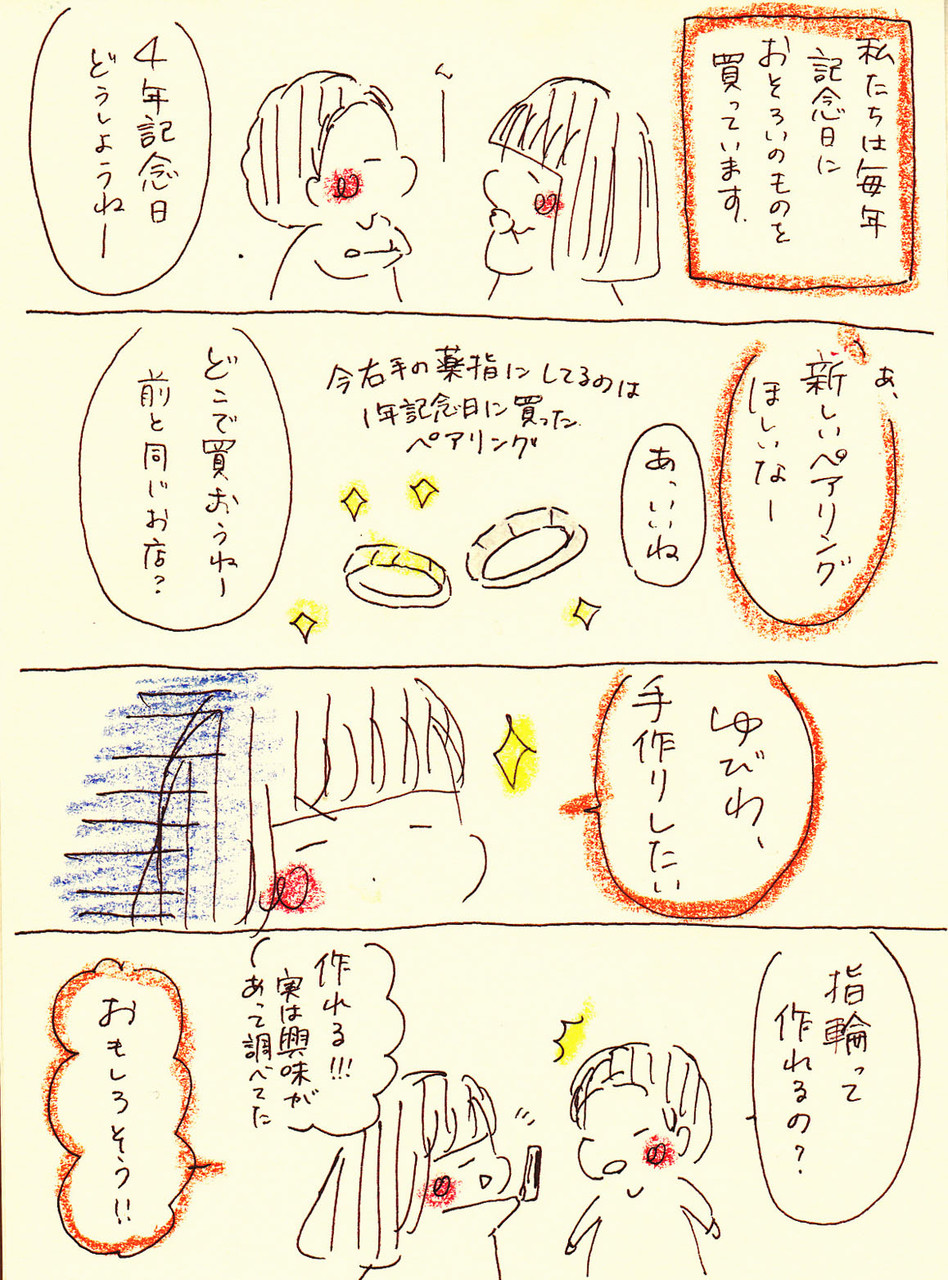 私たちは毎年
記念日に
おそろいのものを
買っています。
ん
4年記念日
どうしようねー
あ、
新しいペアリング
ほしいなー
あ、いいね
今右手の薬指にしてるのは
1年記念日に買った
ペアリング
どこで買おうねー
前と同じお店?
ゆびわ、
手作りしたい
指輪って
作れるの?
作れる!!!
実は興味が
あって調べてた
おもしろそう!!